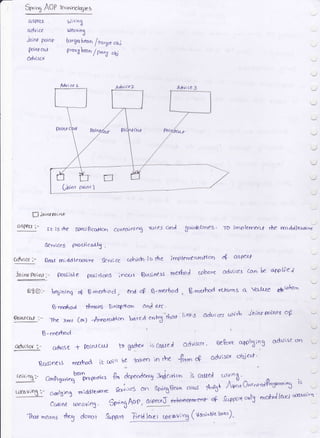 Spring AOP Terminologies
aspect wiring
advice weaving
Joint point target bean / target obj
pointcut proxy bean / proxy obj
advisor
Advice 1 Advice 2 Advice 3
pointcut pointcut pointcut pointcut
(Joint point)
Joinpoint
aspect :- It is the specification containing rules and guidelines to implement the middleware
Services practically.
advice :- Real middleware service which is the implementation of aspect
Joint Point :- possible positions in our Business method where advices can be applied
eg:- begining of B.method, end of B.method, B.method returns a value
B.method throws Exception and etc.
Pointcut :- The xml (or) Annotation based entry that links advices with Jointpoints of
B.method
advisor :- advice + pointcut together is called advisor. Before applying advice on
Business method it will be taken in the form of advisor object.
wiring :- Configuring bean properties for dependency Injection is called wiring.
weaving :- configuring middleware services on Spring Bean class through Aspect Oriented Programming is
called weaving. Spring AOP, aspectJ support only method level weaving
That means they donot support field level weaving (variable level).